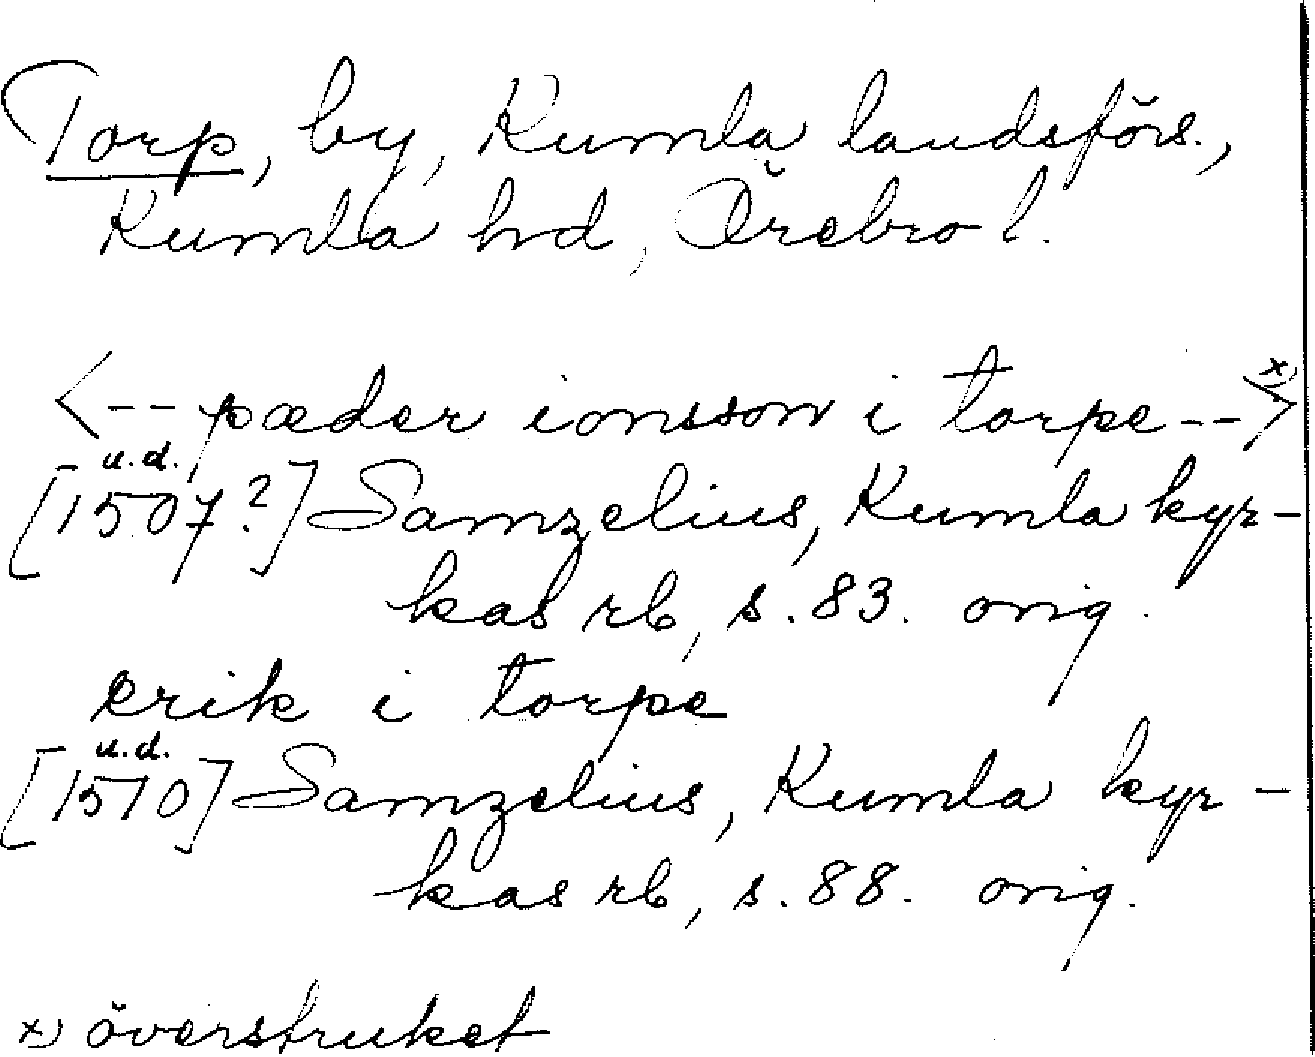 Torp, by, Kumla landsförs.,
Kumla hd, Örebro l.
<-- pæder ionsson i torpe -->x)
u.d.
[1507?] Samzelius, Kumla kyr-
kas rb, s. 83. orig.
erik i torpe
u.d.
[1510] Samzelius, Kumla kyr-
kas rb, s. 88. orig.
x) överstruket